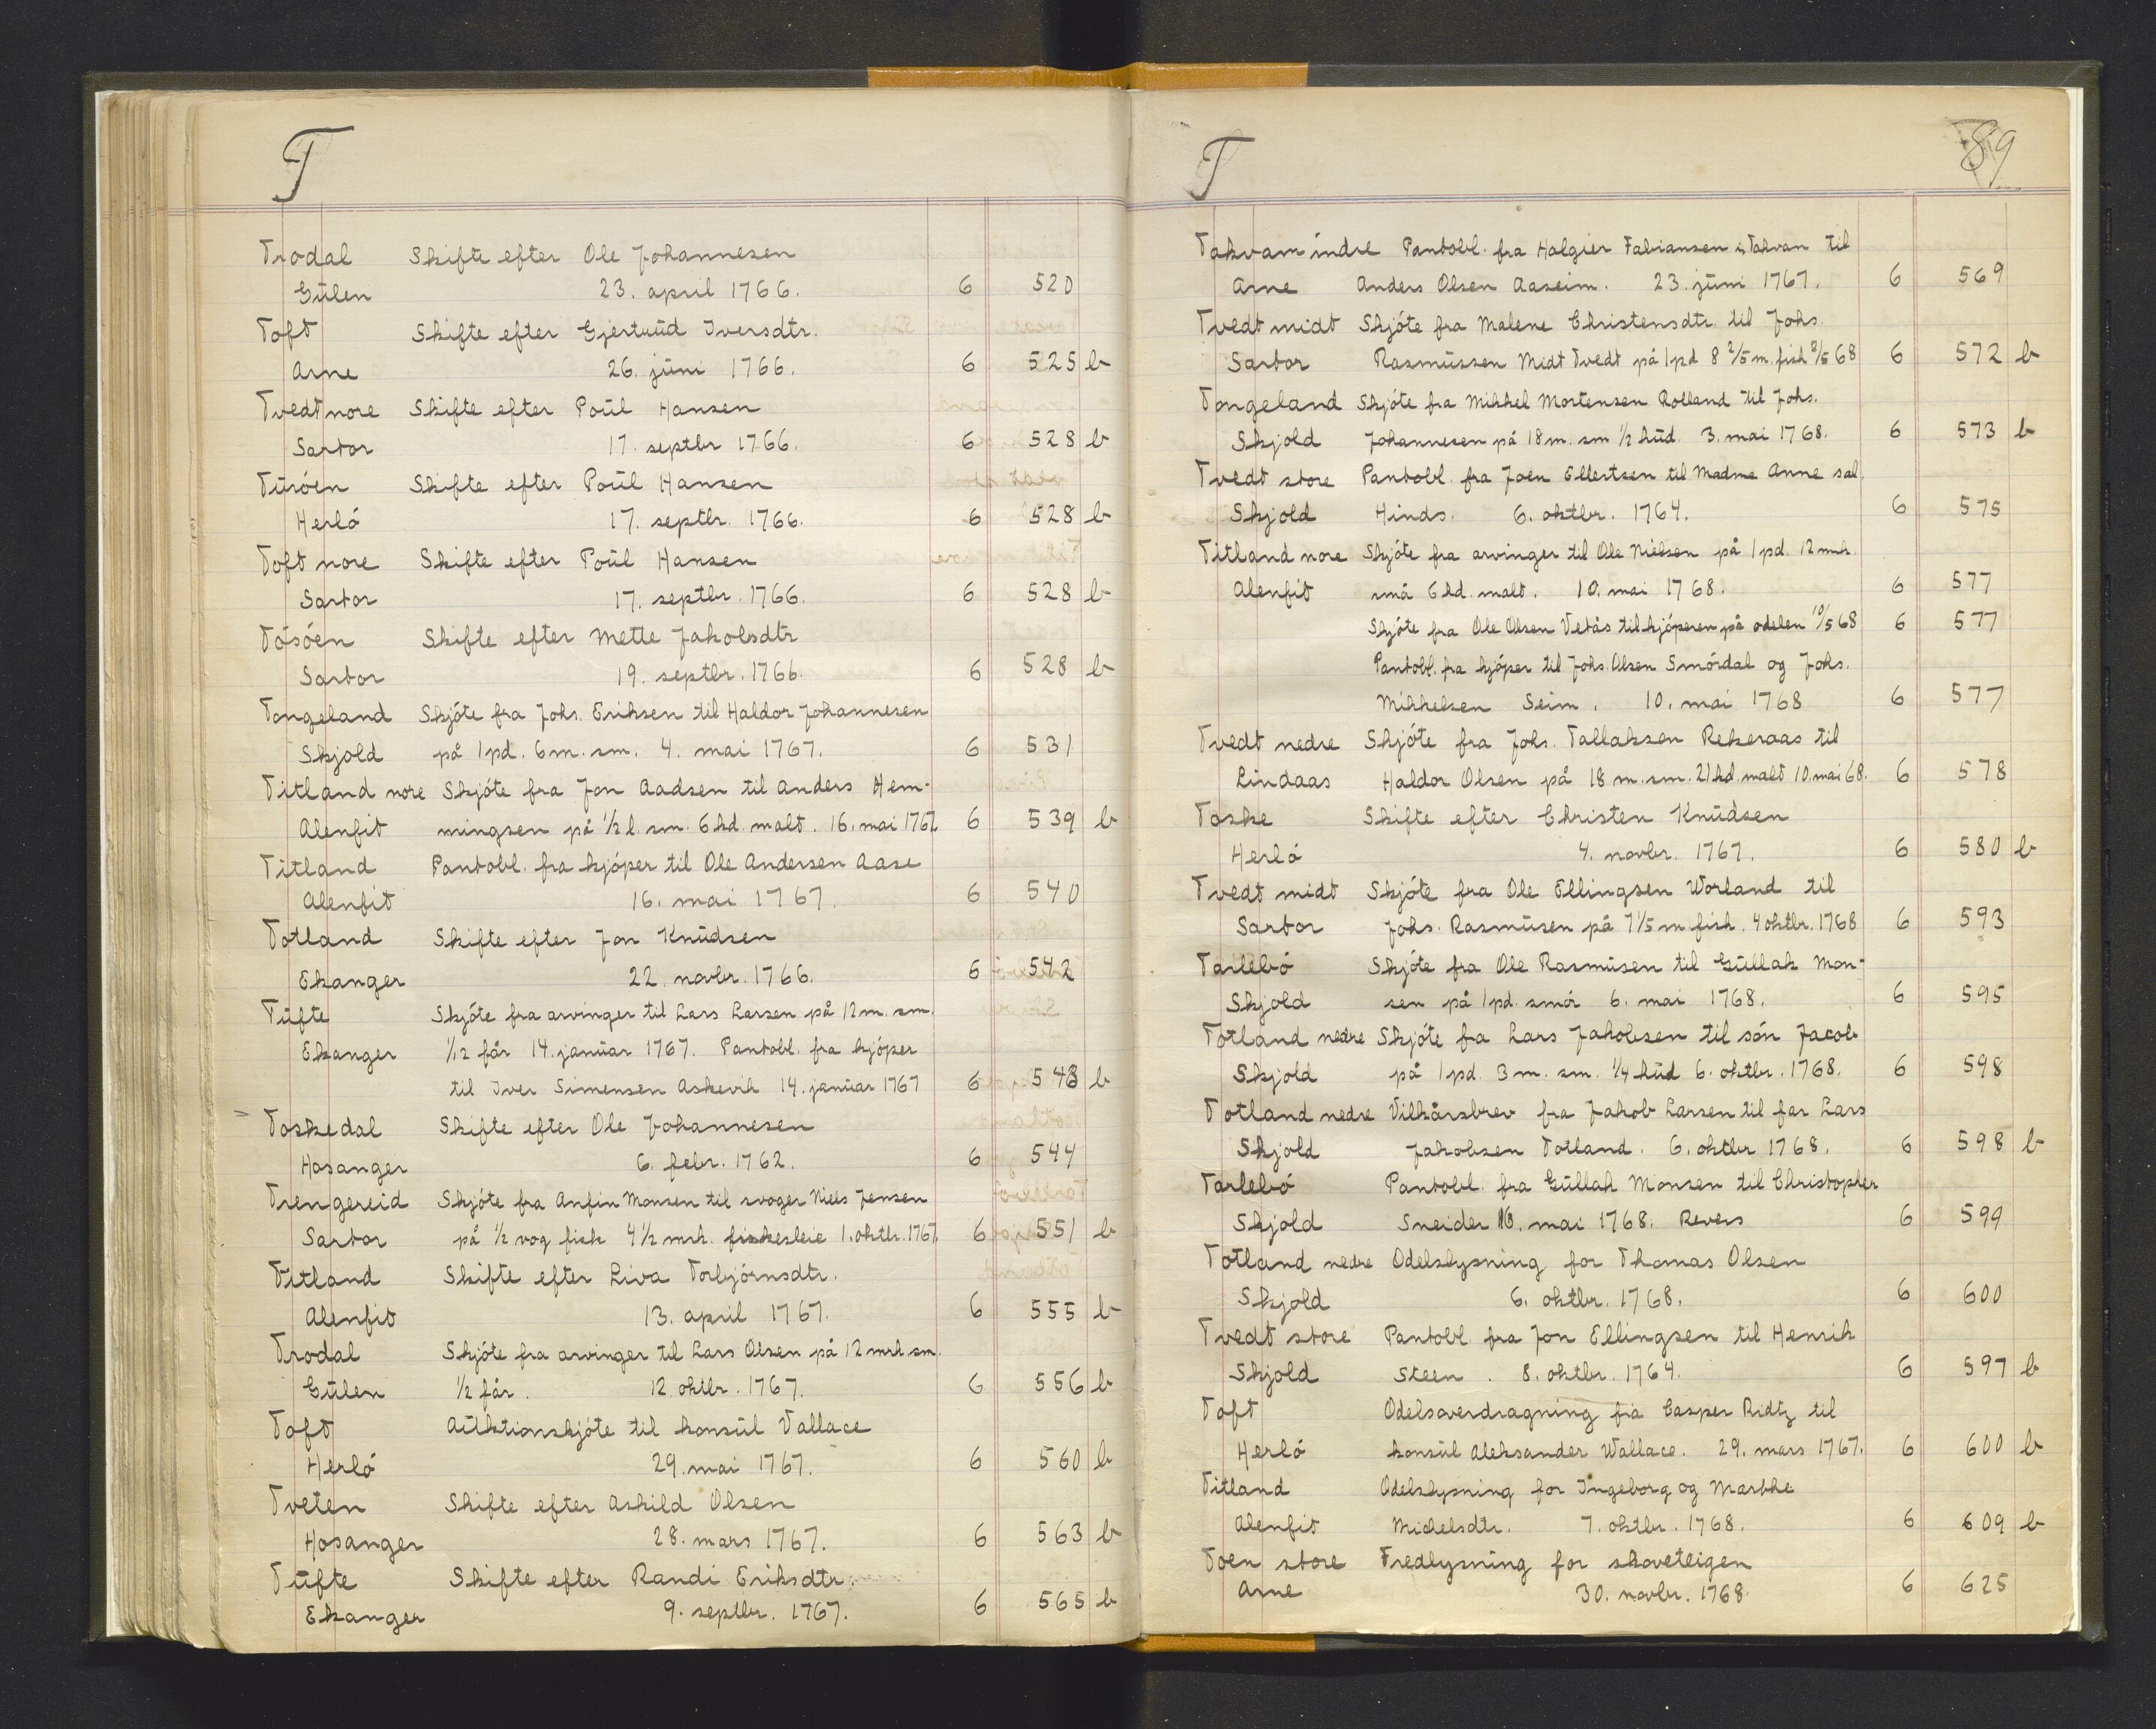 T
Trodal Skifte efter Ole Johannesen
Gülen 23. april 1766. 6 520
Toft Skifte efter Gjertrüd Iversdtr.
Arne 26. jüni 1766. 6 525 b
Tvedt nore Skifte efter Poül Hansen
Sartor 17. septbr 1766. 6 528 b
Türöen Skifte efter Poül Hansen
Herlö 17. septbr. 1766. 6 528 b
Toft nore Skifte efter Poül Hansen
Sartor 17. septbr. 1766. 6 528 b
Tösöen Skifte efter Mette Jakobsdtr
Sartor 19. septbr. 1766. 6 528 b
Tongeland Skjöte fra Johs. Eriksen til Haldor Johannesen
Skjold på 1 pd. 6 m. sm. 4. mai 1767. 6 531
Titland nore Skjöte fra Jon Aadsen til Anders Hem-
Alenfit mingsen på 1/2 l. sm. 6 kd. malt. 16. mai 1767. 6 539 b
Titland Pantobl. fra kjöper til Ole Andersen Aase
Alenfit 16. mai 1767. 6 540
Totland Skifte efter Jon Knüdsen
Ekanger 22. novbr. 1766. 6 542
Tüfte Skjöte fra arvinger til Lars Larsen på 12 m. sm.
Ekanger 1/12 får 14. janüar 1767. Pantobl. fra kjöper
til Iver Simensen Askevik 14. janüar 1767 6 543 b
Toskedal Skifte efter Ole Johannesen
Hosanger 6. febr. 1762. 6 544
Trengereid Skjöte fra Anfin Monsen til svoger Niels Jensen
Sartor på 1/2 vog fisk 4 1/2 mrk. fiskesleie 1. oktbr. 1767. 6 551 b
Titland Skifte efter Liva Torbjörnsdtr.
Alenfit 13. april 1767. 6 555 b
Trodal Skjöte fra arvinger til Lars Olsen på 12 mrk sm.
Gülen 1/2 får. 12. oktbr. 1767. 6 556 b
Toft Aüktionskjöte til konsül Vallace
Herlö 29. mai 1767. 6 560 b
Tveten Skifte efter Askild Olsen
Hosanger 28. mars 1767. 6 563 b
Tüfte Skifte efter Randi Eriksdtr.
Ekanger 9. septbr. 1767. 6 565 b
T 89
Takvam indre Pantobl. fra Holgier Fabiansen i Takvan til
Arne Anders Olsen Aaseim. 23. jüni 1767. 6 569
Tvedt midt Skjöte fra Malene Christensdtr. til Johs.
Sartor Rasmüssen Midt Tvedt på 1 pd 8 2/5 m. fisk 2/5 68 6 572 b
Tongeland Skjöte fra Mikkel Mortensen Rolland til Johs.
Skjold Johannesen på 18 m. sm 1/2 hüd. 3. mai 1768. 6 573 b
Tvedt store Pantobl. fra Joen Ellertsen til Madme Anne sal.
Skjold Hinds. 6. oktbr. 1764. 6 575
Titland nore Skjöte fra arvinger til Ole Nielsen på 1 pd. 12 mrk.
Alenfit små 6 kd. malt. 10. mai 1768. 6 577
Skjöte fra Ole Olsen Vetås til kjöperen på odelen 10/5 68 6 577
Pantobl. fra kjöper til Johs. Olsen Smördal og Johs.
Mikkelsen Seim. 10. mai 1768 6 577
Tvedt nedre Skjöte fra Johs. Tallaksen Rekeraas til
Lindaas Haldor Olsen på 18 m. sm. 21 kd. malt 10. mai 68. 6 578
Toske Skifte efter Christen Knüdsen
Herlö 4. novbr. 1767. 6 580 b
Tvedt midt Skjöte fra Ole Ellingsen Worland til
Sartor Johs. Rasmüsen på 7 1/5 m fisk. 4 oktbr. 1768 6 593
Tarlebö Skjöte fra Ole Rasmüsen til Güllak Mon-
Skjold sen på 1 pd. smör 6. mai 1768. 6 595
Totland nedre Skjöte fra Lars Jakobsen til sön Jacob
Skjold på 1 pd. 3 m. sm. 1/4 hüd 6. oktbr. 1768. 6 598
Totland nedre Vilkårsbrev fra Jakob Larsen til far Lars
Skjold Jakobsen Totland. 6. oktbr 1768. 6 598 b
Tarlebö Pantobl. fra Güllak Monsen til Christopher
Skjold Sneider 16. mai 1768. Revers 6 599
Totland nedre Odelslysning for Thomas Olsen
Skjold 6. oktbr. 1768. 6 600
Tvedt store Pantobl. fra Jon Ellingsen til Henrik
Skjold Steen. 8. oktbr. 1764. 6 597 b
Toft Odelsoverdragning fra Casper Ridtz til
Herlö konsül Aleksander Wallace. 29. mars 1767. 6 600 b
Titland Odelslysning for Ingeborg og Marthe
Alenfit Michelsdtr. 7. oktbr. 1768. 6 609 b
Toen store Fredlysning for skoveteigen
Arne 30. novbr. 1768. 6 625